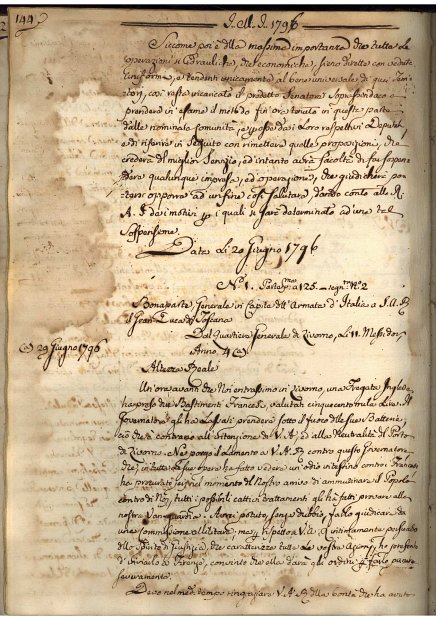 144
I. M. I. 1796
Siccome poi è della massima importanza che tutte le
operazioni sì Idrauliche, che economiche, siano dirette con vedute
uniformi, e tendenti unicamente al bene universale di quei Terri-
torj, così resta incaricato il predetto Senatore Soprasindaco a
prendere in esame il metodo fin'ora tenuto in questa parte
dalle nominate Comunità, e loro respettivi Deputati
e di riferire in seguito con rimettere quelle proposizioni, che
crederà di miglior Servizio, ed intanto avrà facoltà di far sospen-
dere qualunque impresa, ed operazione, che giudicherà po-
tersi opporre ad un fine così salutare, dando conto alle R.
A. S. dei motivi per i quali si sarà determinato ad una tal
Sospensione.
Data li 20 Giugno 1796
N.º 1. a 125. segn. N.º 2
Bonaparte, Generale in Capite dell'Armata d'Italia a S. A. R.
il Gran-Duca di Toscana
Dal Quartiere Generale di Livorno, li 11. Messidor,
Anno 4 (a)
(a) 29 Giugno 1796
Altezza Reale
Un'ora avanti che Noi entrassimo in Livorno, una Fregata Inglese
ha preso due Bastimenti Francesi, valutati cinquecentomila Lire. Il
Governatore gli ha lasciati prendere sotto il fuoco delle sue Batterie
ciò che è contrario all'intenzione di V. A., ed alla Neutralità del Porto
di Livorno. Ne porgo il lamento a V. A. R. contro questo Governatore
che in tutte le sue opere ha fatto vedere un odio intestino contro i Francesi
ha procurato jeri nel momento del nostro arrivo di ammutinare il Popolo
contro di Noi, tutti i possibili cattivi trattamenti gli ha fatti provare alla
nostra Vanguardia. Avrei potuto, senza dubbio, farlo giudicare da
una Commissione Militare, ma rispetto V. A. Intimamente persuaso
dello Spirito di Giustizia, che caratterizza tutte le vostre Azioni, ho preferito
d'inviarlo a Firenze, convinto che ella darà gli ordini per farlo punire
severamente.
Devo nel med. tempo ringraziare V. A. R. della bontà che ha avuta